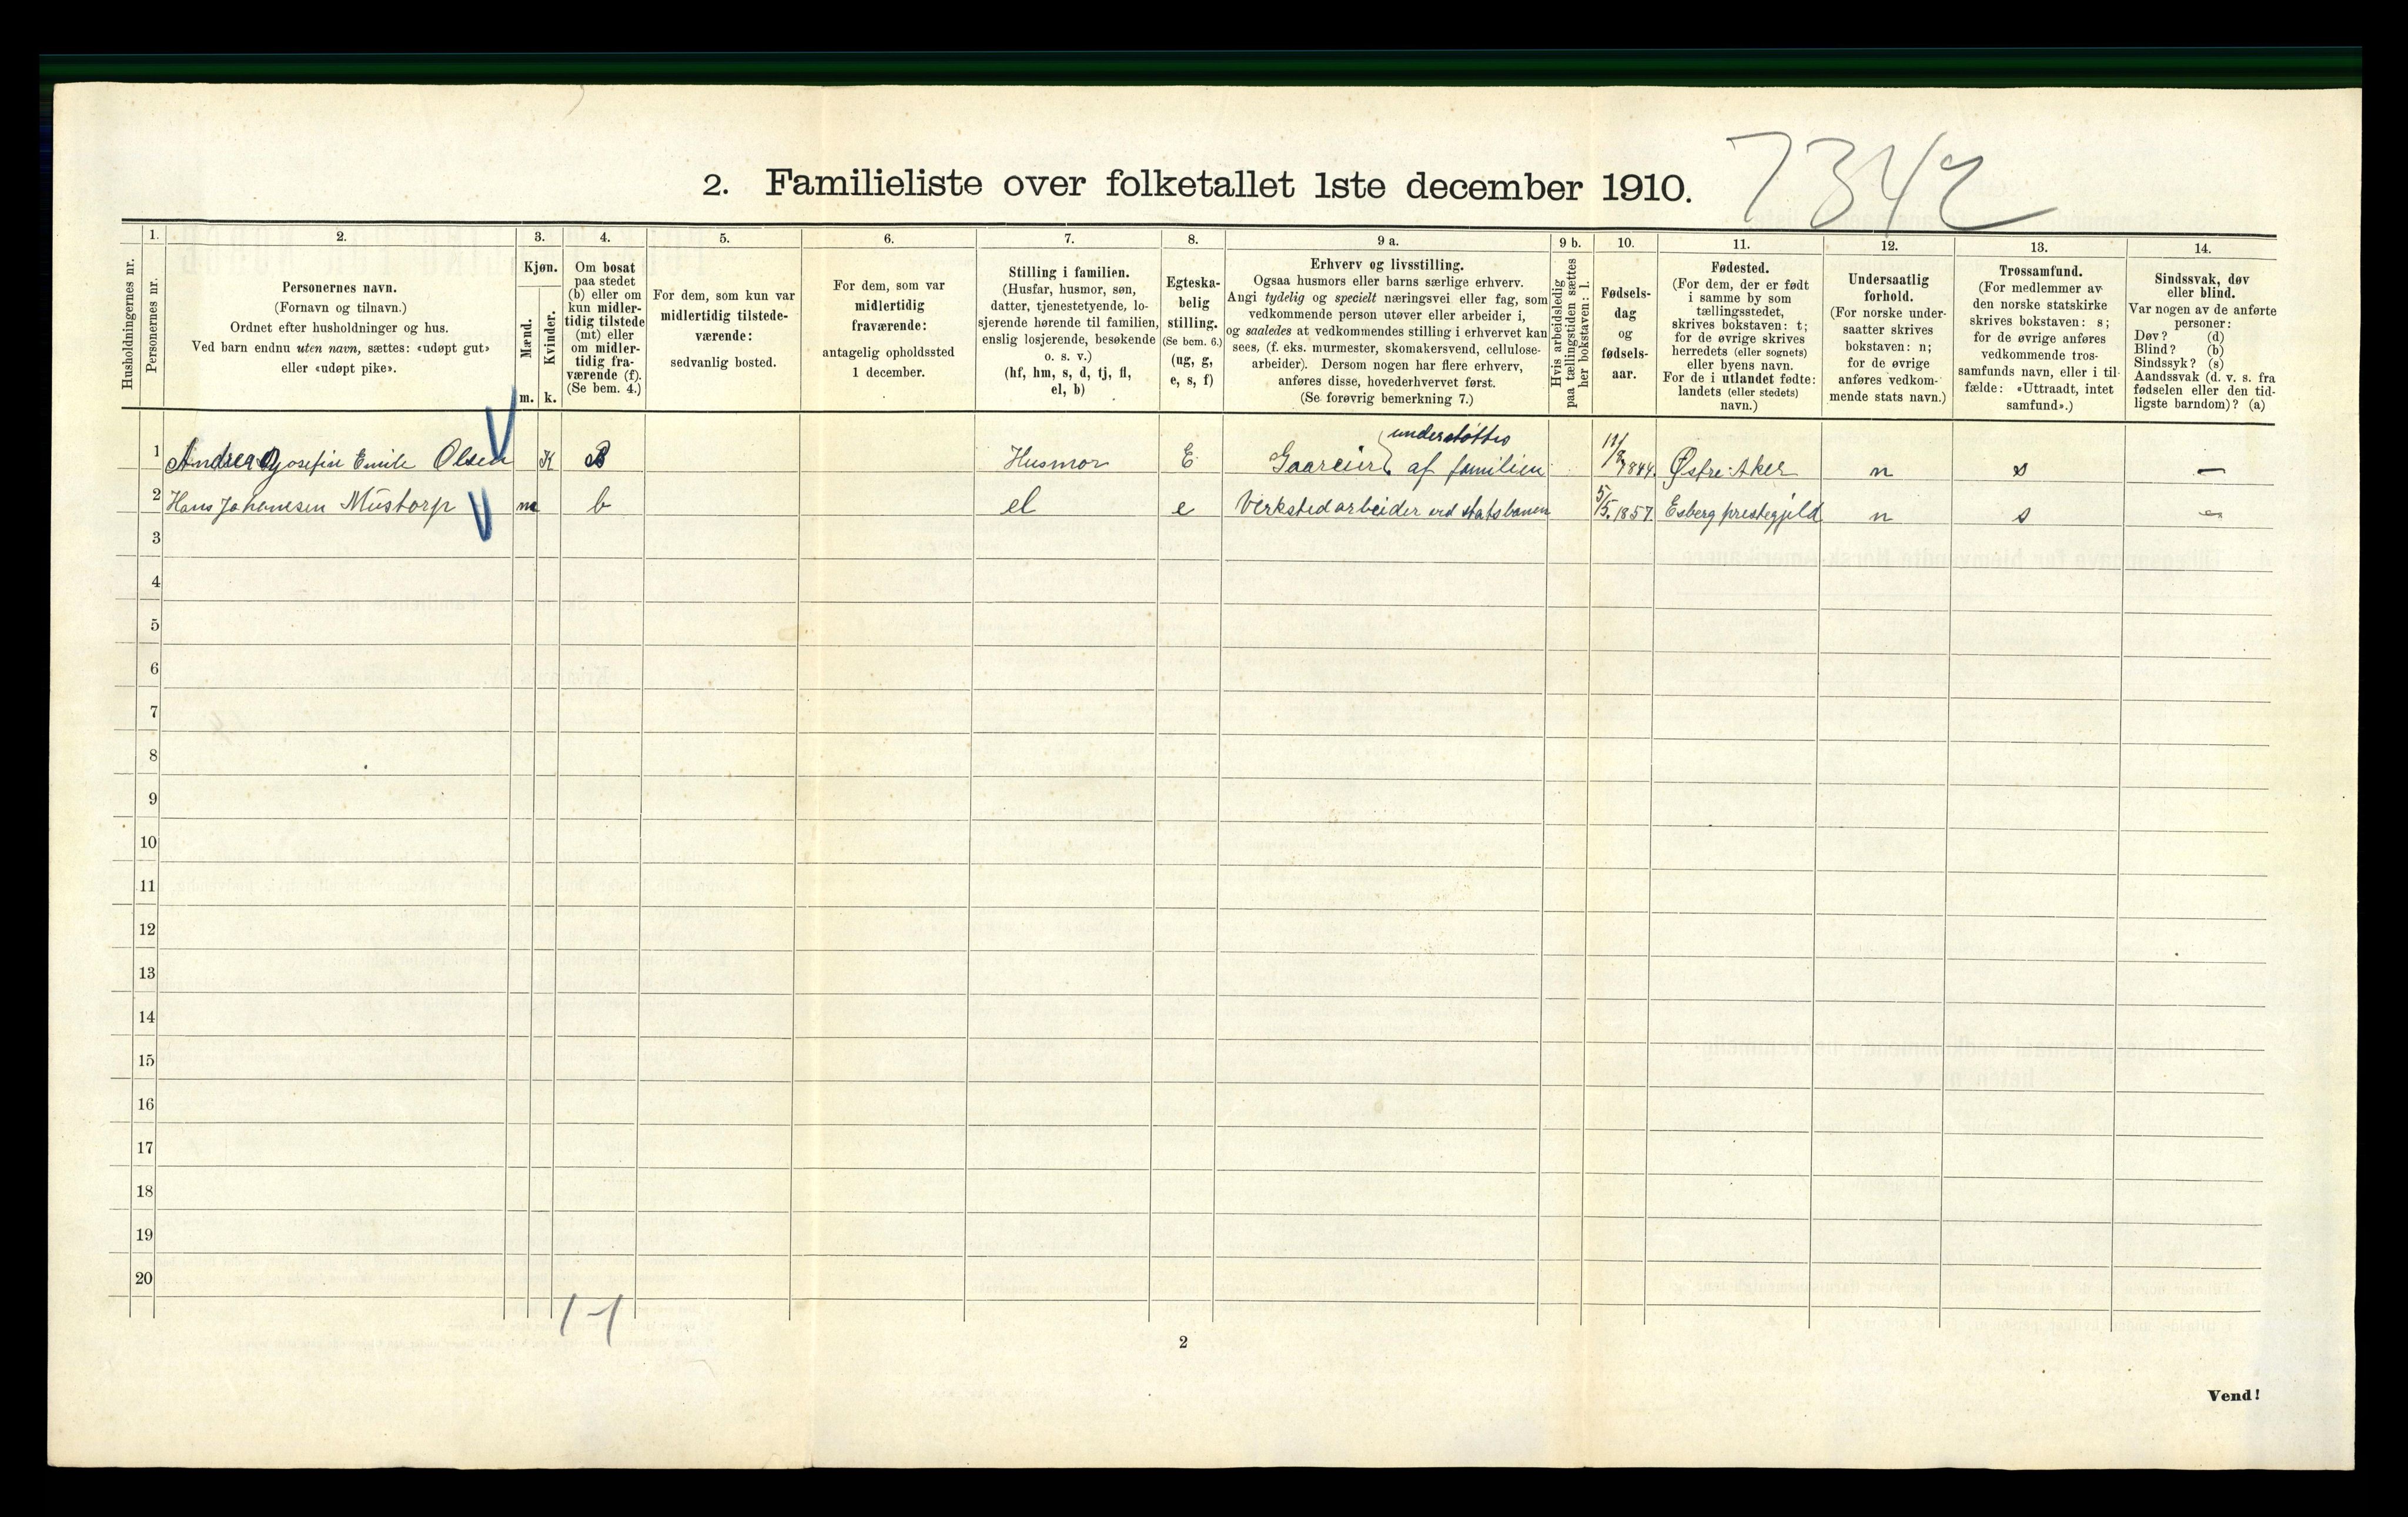 7342
2. Familieliste over folketallet 1ste december 1910.
Husholdningernes nr.
1.
Personernes nr.
2.
Personernes navn.
(Fornavn og tilnavn.)
Ordnet efter husholdninger og hus.
Ved barn endnu uten navn, sættes: «udøpt gut»
eller «udøpt pike».
3.
Kjøn.
Mænd.
Kvinder.
m. k.
4.
Om bosat
paa stedet
(b) eller om
kun midler-
tidig tilstede
(mt) eller
om midler-
tidig fra-
værende (f).
(Se bem. 4.)
5.
For dem, som kun var
midlertidig tilstede-
værende:
sedvanlig bosted.
6.
For dem, som var
midlertidig
fraværende:
antagelig opholdssted
1 december.
7.
Stilling i familien.
(Husfar, husmor, søn,
datter, tjenestetyende, lo-
sjerende hørende til familien,
enslig losjerende, besøkende
o. s. v.)
(hf, hm, s, d, tj, fl,
el, b)
8.
Egteska-
belig
stilling.
(Se bem. 6.)
(ug, g,
e, s, f)
9 a.
Erhverv og livsstilling.
Ogsaa husmors eller barns særlige erhverv.
Angi tydelig og specielt næringsvei eller fag, som
vedkommende person utøver eller arbeider i,
og saaledes at vedkommendes stilling i erhvervet kan
sees, (f. eks. murmester, skomakersvend, cellulose-
arbeider). Dersom nogen har flere erhverv,
anføres disse, hovederhvervet først.
(Se forøvrig bemerkning 7.)
9 b.
Hvis arbeidsledig
paa tællingstiden sættes
her bokstaven: l.
10.
Fødsels-
dag
og
fødsels-
aar.
11.
Fødested.
(For dem, der er født
i samme by som
tællingsstedet,
skrives bokstaven: t;
for de øvrige skrives
herredets (eller sognets)
eller byens navn.
For de i utlandet fødte:
landets (eller stedets)
navn.)
12.
Undersaatlig
forhold.
(For norske under-
saatter skrives
bokstaven: n;
for de øvrige
anføres vedkom-
mende stats navn.)
13.
Trossamfund.
(For medlemmer av
den norske statskirke
skrives bokstaven: s;
for de øvrige anføres
vedkommende tros-
samfunds navn, eller i til-
fælde: «Uttraadt, intet
samfund».)
14.
Sindssvak, døv
eller blind.
Var nogen av de anførte
personer:
Døv? (d)
Blind? (b)
Sindssyk? (s)
Aandssvak (d. v. s. fra
fødselen eller den tid-
ligste barndom)? (a)
understøttes
1 Andrea Josefin Emile Olsen K B Husmor E Gaareier af familien 1844. Østre Aker n s —
2 Hans Johanesen Mustorp m b el e Verkstedarbeider ved statsbanen 5/5. 1857. Esberg prestegjeld n s —
3
4
5
6
7
8
9
10
11
12
13
14
15
16
17
18
19
20
1-1
2
Vend!